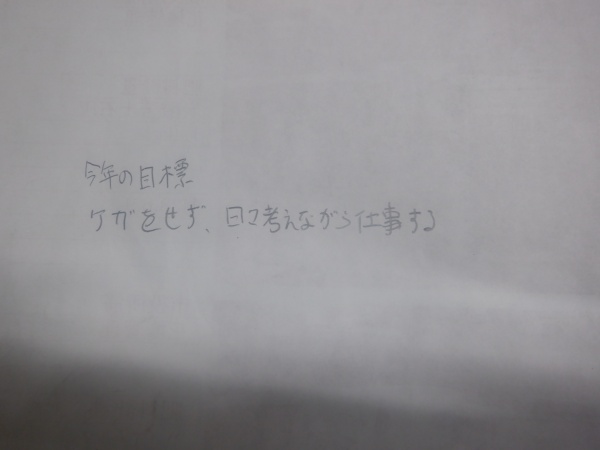 今年の目標
ケガをせず、日々考えながら仕事する